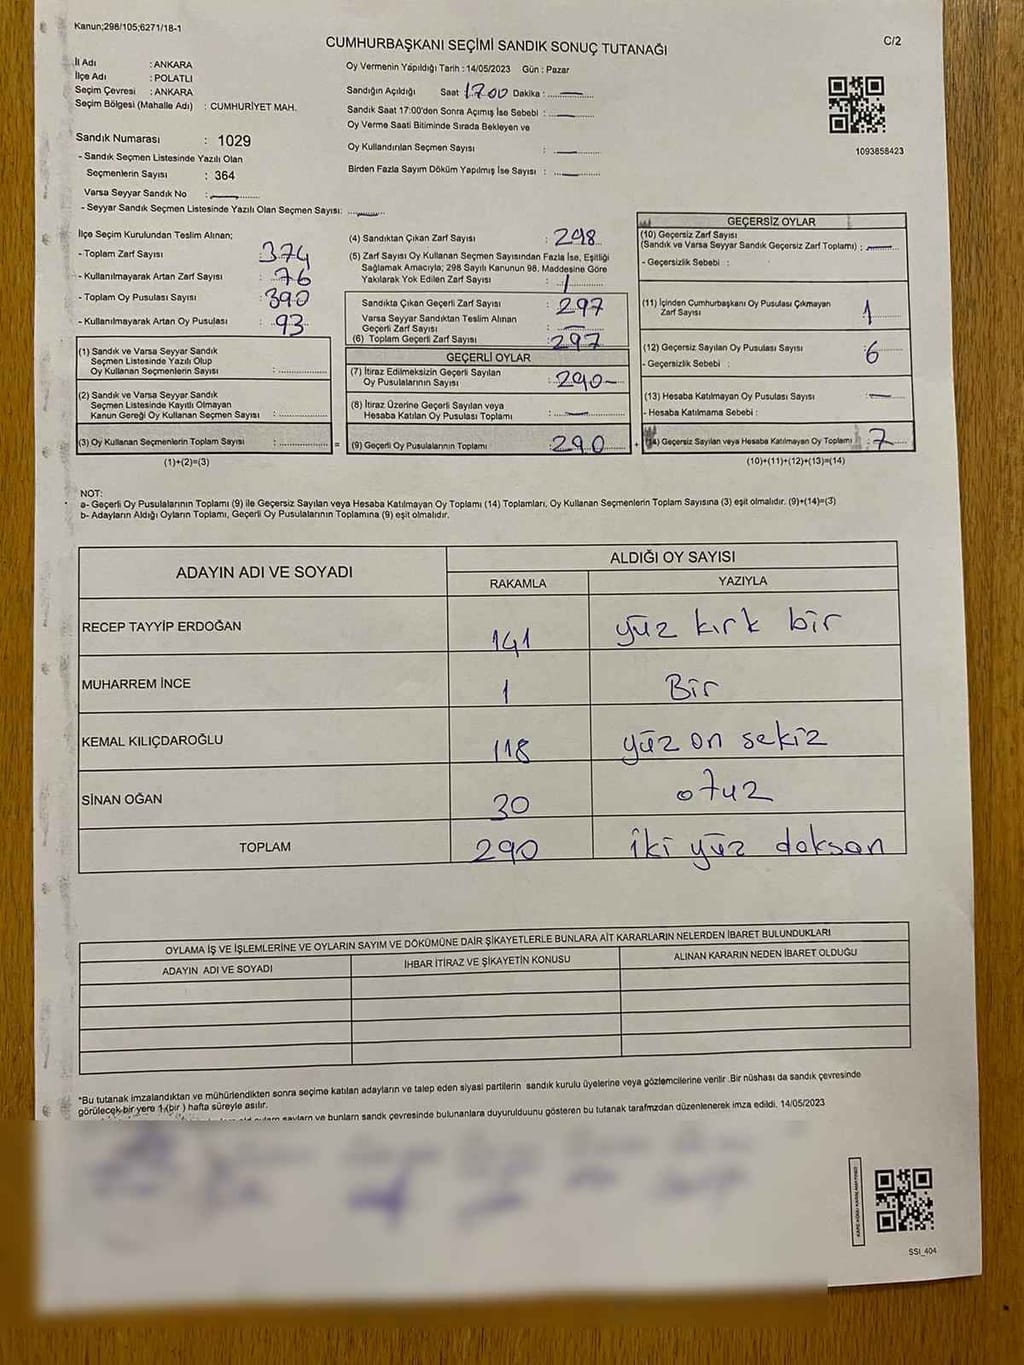 Kanun;298/105;6271/18-1
C/2
CUMHURBAŞKANI SEÇİMİ SANDIK SONUÇ TUTANAĞI
İl Adı : ANKARA
İlçe Adı : POLATLI
Seçim Çevresi : ANKARA
Seçim Bölgesi (Mahalle Adı) : CUMHURİYET MAH.
Sandık Numarası : 1029
- Sandık Seçmen Listesinde Yazılı Olan
Seçmenlerin Sayısı : 364
Varsa Seyyar Sandık No :
- Seyyar Sandık Seçmen Listesinde Yazılı Olan Seçmen Sayısı:
Oy Vermenin Yapıldığı Tarih : 14/05/2023 Gün : Pazar
Sandığın Açıldığı Saat 17.00 Dakika : —
Sandık Saat 17:00'den Sonra Açımış İse Sebebi : —
Oy Verme Saati Bitiminde Sırada Bekleyen ve
Oy Kullandırılan Seçmen Sayısı : —
Birden Fazla Sayım Döküm Yapılmış İse Sayısı : —
1093858423
İlçe Seçim Kurulundan Teslim Alınan;
- Toplam Zarf Sayısı : 374
- Kullanılmayarak Artan Zarf Sayısı : 76
- Toplam Oy Pusulası Sayısı : 390
- Kullanılmayarak Artan Oy Pusulası : 93
(1) Sandık ve Varsa Seyyar Sandık
Seçmen Listesinde Yazılı Olup
Oy Kullanan Seçmenlerin Sayısı :
(2) Sandık ve Varsa Seyyar Sandık
Seçmen Listesinde Kayıtlı Olmayan
Kanun Gereği Oy Kullanan Seçmen Sayısı :
(3) Oy Kullanan Seçmenlerin Toplam Sayısı : =
(1)+(2)=(3)
(4) Sandıktan Çıkan Zarf Sayısı : 298
(5) Zarf Sayısı Oy Kullanan Seçmen Sayısından Fazla İse, Eşitliği
Sağlamak Amacıyla; 298 Sayılı Kanunun 98. Maddesine Göre
Yakılarak Yok Edilen Zarf Sayısı : 1
Sandıkta Çıkan Geçerli Zarf Sayısı : 297
Varsa Seyyar Sandıktan Teslim Alınan
Geçerli Zarf Sayısı : —
(6) Toplam Geçerli Zarf Sayısı : 297
GEÇERLİ OYLAR
(7) İtiraz Edilmeksizin Geçerli Sayılan
Oy Pusulalarının Sayısı : 290
(8) İtiraz Üzerine Geçerli Sayılan veya
Hesaba Katılan Oy Pusulası Toplamı : —
(9) Geçerli Oy Pusulalarının Toplamı : 290 +
GEÇERSİZ OYLAR
(10) Geçersiz Zarf Sayısı
(Sandık ve Varsa Seyyar Sandık Geçersiz Zarf Toplamı) : —
- Geçersizlik Sebebi :
(11) İçinden Cumhurbaşkanı Oy Pusulası Çıkmayan
Zarf Sayısı : 1
(12) Geçersiz Sayılan Oy Pusulası Sayısı : 6
- Geçersizlik Sebebi :
(13) Hesaba Katılmayan Oy Pusulası Sayısı : —
- Hesaba Katılmama Sebebi :
(14) Geçersiz Sayılan veya Hesaba Katılmayan Oy Toplamı : 7
(10)+(11)+(12)+(13)=(14)
NOT:
a- Geçerli Oy Pusulalarının Toplamı (9) ile Geçersiz Sayılan veya Hesaba Katılmayan Oy Toplamı (14) Toplamları, Oy Kullanan Seçmenlerin Toplam Sayısına (3) eşit olmalıdır. (9)+(14)=(3)
b- Adayların Aldığı Oyların Toplamı, Geçerli Oy Pusulalarının Toplamına (9) eşit olmalıdır.
ADAYIN ADI VE SOYADI
ALDIĞI OY SAYISI
RAKAMLA YAZIYLA
RECEP TAYYİP ERDOĞAN 141 yüz kırk bir
MUHARREM İNCE 1 Bir
KEMAL KILIÇDAROĞLU 118 yüz on sekiz
SİNAN OĞAN 30 otuz
TOPLAM 290 iki yüz doksan
OYLAMA İŞ VE İŞLEMLERİNE VE OYLARIN SAYIM VE DÖKÜMÜNE DAİR ŞİKAYETLERLE BUNLARA AİT KARARLARIN NELERDEN İBARET BULUNDUKLARI
ADAYIN ADI VE SOYADI İHBAR İTİRAZ VE ŞİKAYETİN KONUSU ALINAN KARARIN NEDEN İBARET OLDUĞU
*Bu tutanak imzalandıktan ve mühürlendikten sonra seçime katılan adayların ve talep eden siyasi partilerin sandık kurulu üyelerine veya gözlemcilerine verilir .Bir nüshası da sandık çevresinde
görülecek bir yere 1 (bir ) hafta süreyle asılır.
ve bunların sandk çevresinde bulunanlara duyurulduunu gösteren bu tutanak tarafmzdan düzenlenerek imza edildi. 14/05/2023
SSI_404